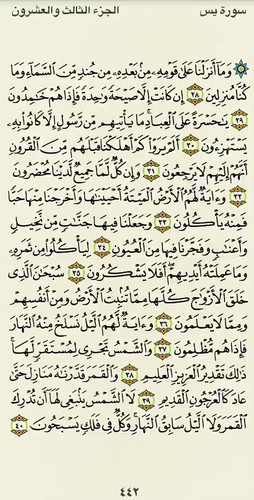 سورة يس الجزء الثالث والعشرون
۞ وَمَآ أَنزَلْنَا عَلَىٰ قَوْمِهِۦ مِنۢ بَعْدِهِۦ مِن جُندٍ مِّنَ ٱلسَّمَآءِ وَمَا
كُنَّا مُنزِلِينَ ٢٨ إِن كَانَتْ إِلَّا صَيْحَةً وَٰحِدَةً فَإِذَا هُمْ خَٰمِدُونَ
٢٩ يَٰحَسْرَةً عَلَى ٱلْعِبَادِ مَا يَأْتِيهِم مِّن رَّسُولٍ إِلَّا كَانُوا۟ بِهِۦ
يَسْتَهْزِءُونَ ٣٠ أَلَمْ يَرَوْا۟ كَمْ أَهْلَكْنَا قَبْلَهُم مِّنَ ٱلْقُرُونِ
أَنَّهُمْ إِلَيْهِمْ لَا يَرْجِعُونَ ٣١ وَإِن كُلٌّ لَّمَّا جَمِيعٌ لَّدَيْنَا مُحْضَرُونَ
٣٢ وَءَايَةٌ لَّهُمُ ٱلْأَرْضُ ٱلْمَيْتَةُ أَحْيَيْنَٰهَا وَأَخْرَجْنَا مِنْهَا حَبًّا
فَمِنْهُ يَأْكُلُونَ ٣٣ وَجَعَلْنَا فِيهَا جَنَّٰتٍ مِّن نَّخِيلٍ
وَأَعْنَٰبٍ وَفَجَّرْنَا فِيهَا مِنَ ٱلْعُيُونِ ٣٤ لِيَأْكُلُوا۟ مِن ثَمَرِهِۦ
وَمَا عَمِلَتْهُ أَيْدِيهِمْ أَفَلَا يَشْكُرُونَ ٣٥ سُبْحَٰنَ ٱلَّذِى
خَلَقَ ٱلْأَزْوَٰجَ كُلَّهَا مِمَّا تُنۢبِتُ ٱلْأَرْضُ وَمِنْ أَنفُسِهِمْ
وَمِمَّا لَا يَعْلَمُونَ ٣٦ وَءَايَةٌ لَّهُمُ ٱلَّيْلُ نَسْلَخُ مِنْهُ ٱلنَّهَارَ
فَإِذَا هُم مُّظْلِمُونَ ٣٧ وَٱلشَّمْسُ تَجْرِى لِمُسْتَقَرٍّ لَّهَا
ذَٰلِكَ تَقْدِيرُ ٱلْعَزِيزِ ٱلْعَلِيمِ ٣٨ وَٱلْقَمَرَ قَدَّرْنَٰهُ مَنَازِلَ حَتَّىٰ
عَادَ كَٱلْعُرْجُونِ ٱلْقَدِيمِ ٣٩ لَا ٱلشَّمْسُ يَنۢبَغِى لَهَآ أَن تُدْرِكَ
ٱلْقَمَرَ وَلَا ٱلَّيْلُ سَابِقُ ٱلنَّهَارِ وَكُلٌّ فِى فَلَكٍ يَسْبَحُونَ ٤٠
٤٤٢